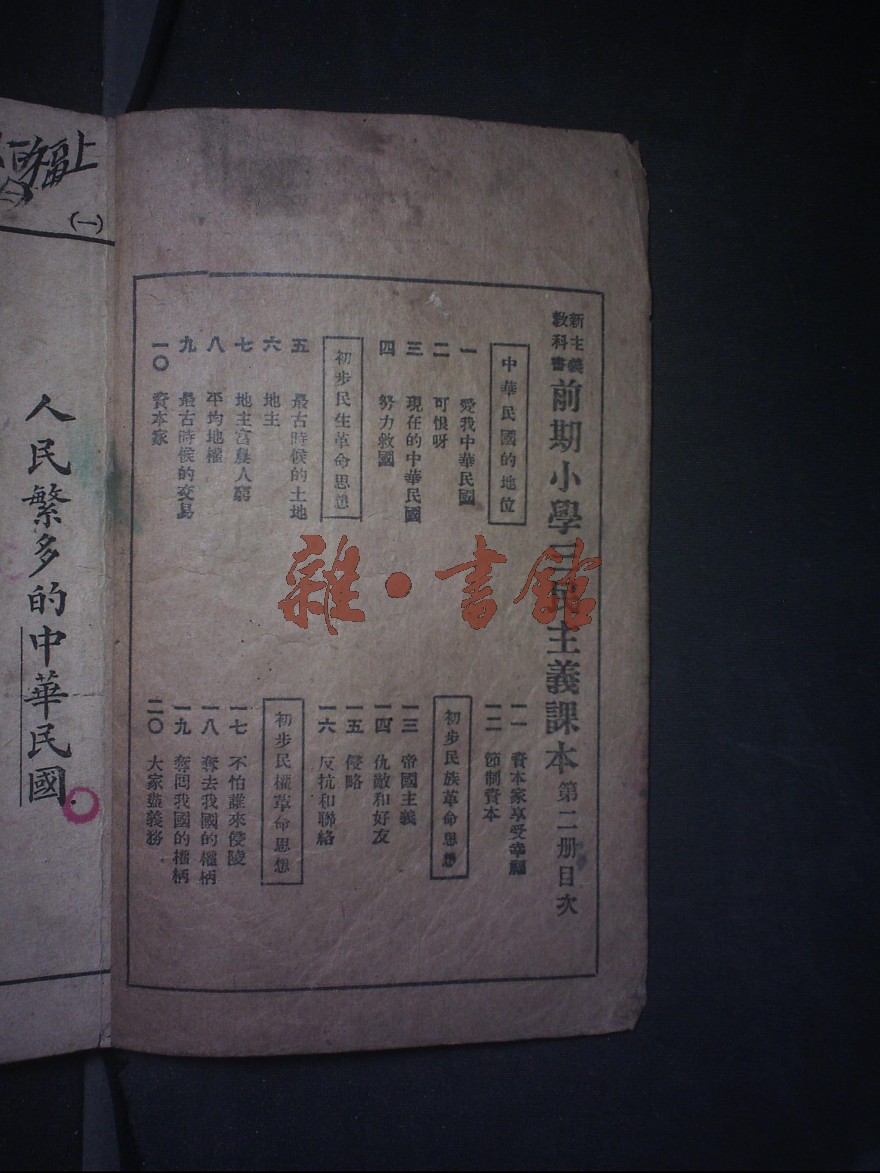 新主義
教科書
前期小學三民主義課本 第二册目次
中華民國的地位
一 愛我中華民國
二 可恨呀
三 現在的中華民國
四 努力救國
初步民生革命思想
五 最古時候的土地
六 地主
七 地主富農人窮
八 平均地權
九 最古時候的交易
一〇 資本家
一一 資本家享受幸福
一二 節制資本
初步民族革命思想
一三 帝國主義
一四 仇敵和好友
一五 侵略
一六 反抗和聯絡
初步民權革命思想
一七 不怕誰來侵陵
一八 奪去我國的權柄
一九 奪回我國的權柄
二〇 大家盡義務
雜·書館
上
福
(一)
人民繁多的中華民國